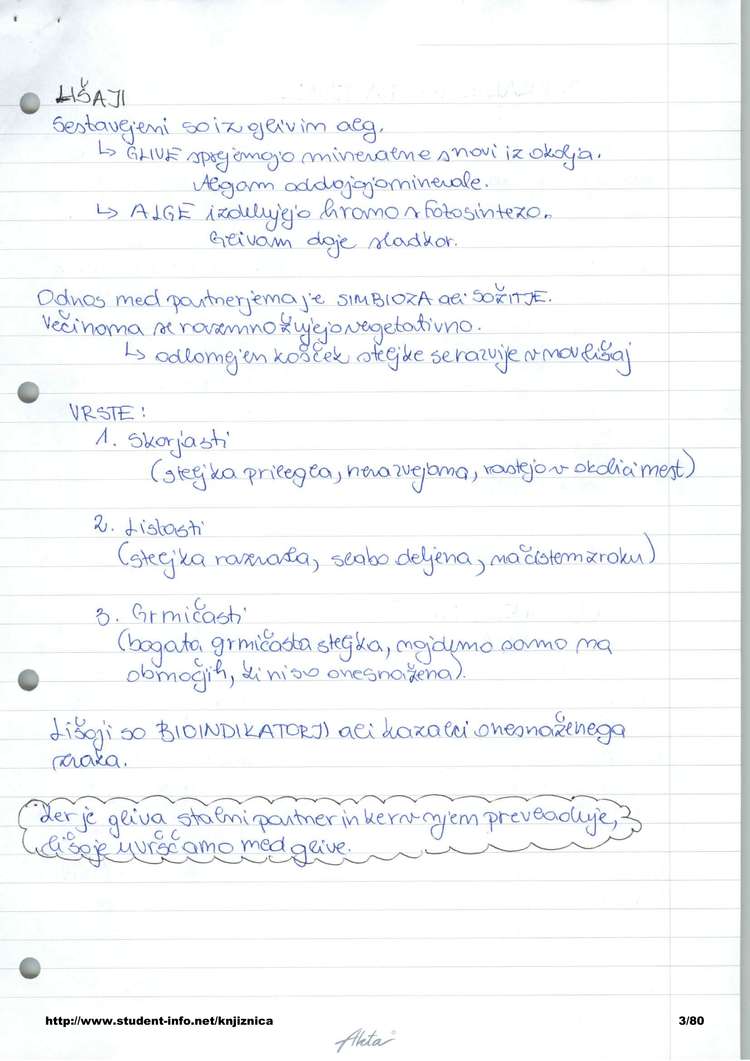 LIŠAJI
Sestavljeni so iz gliv in alg.
↳ GLIVE sprejemajo mineralne snovi iz okolja.
Algam oddajajo minerale.
↳ ALGE izdelujejo hrano s fotosintezo.
Glivam daje sladkor.
Odnos med partnerjema je SIMBIOZA ali SOŽITJE.
Večinoma se razmnožujejo vegetativno.
↳ odlomljen košček steljke se razvije v nov lišaj
VRSTE:
1. Skorjasti
(steljka prilegla, nerazvejana, rastejo v okolici mest)
2. Listasti
(steljka razrasla, slabo deljena, na čistem zraku)
3. Grmičasti
(bogata, grmičasta steljka, najdemo samo na
območjih, ki niso onesnažena).
Lišaji so BIOINDIKATORJI ali kazalci onesnaženega
zraka.
Ker je gliva stalni partner in ker v njem prevladuje,
lišaje uvrščamo med glive.
http://www.student-info.net/knjiznica 3/80
Akta